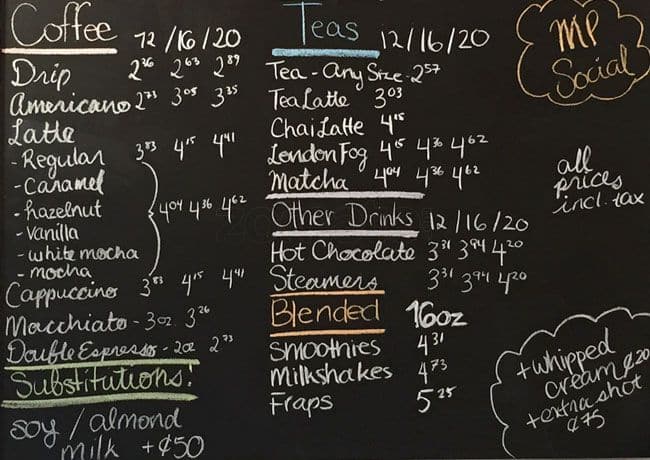 Coffee 12/16/20
Drip 2.36 2.63 2.89
Americano 2.73 3.05 3.35
Latte
- Regular 3.83 4.15 4.41
- Caramel
- hazelnut 4.04 4.36 4.62
- Vanilla
- white mocha
- mocha
Cappuccino 3.83 4.15 4.41
Macchiato - 3oz. 3.26
Double Espresso - 2oz 2.73
Substitutions!
soy / almond
milk +¢50
Teas 12/16/20
Tea - Any Size - 2.57
Tea Latte 3.03
Chai Latte 4.15
London Fog 4.15 4.36 4.62
Matcha 4.04 4.36 4.62
Other Drinks 12/16/20
Hot Chocolate 3.31 3.94 4.20
Steamers 3.31 3.94 4.20
Blended 16oz
Smoothies 4.31
Milkshakes 4.73
Fraps 5.25
MP
Social
all
prices
incl. tax
+ whipped
cream ¢20
+ extra shot
¢75